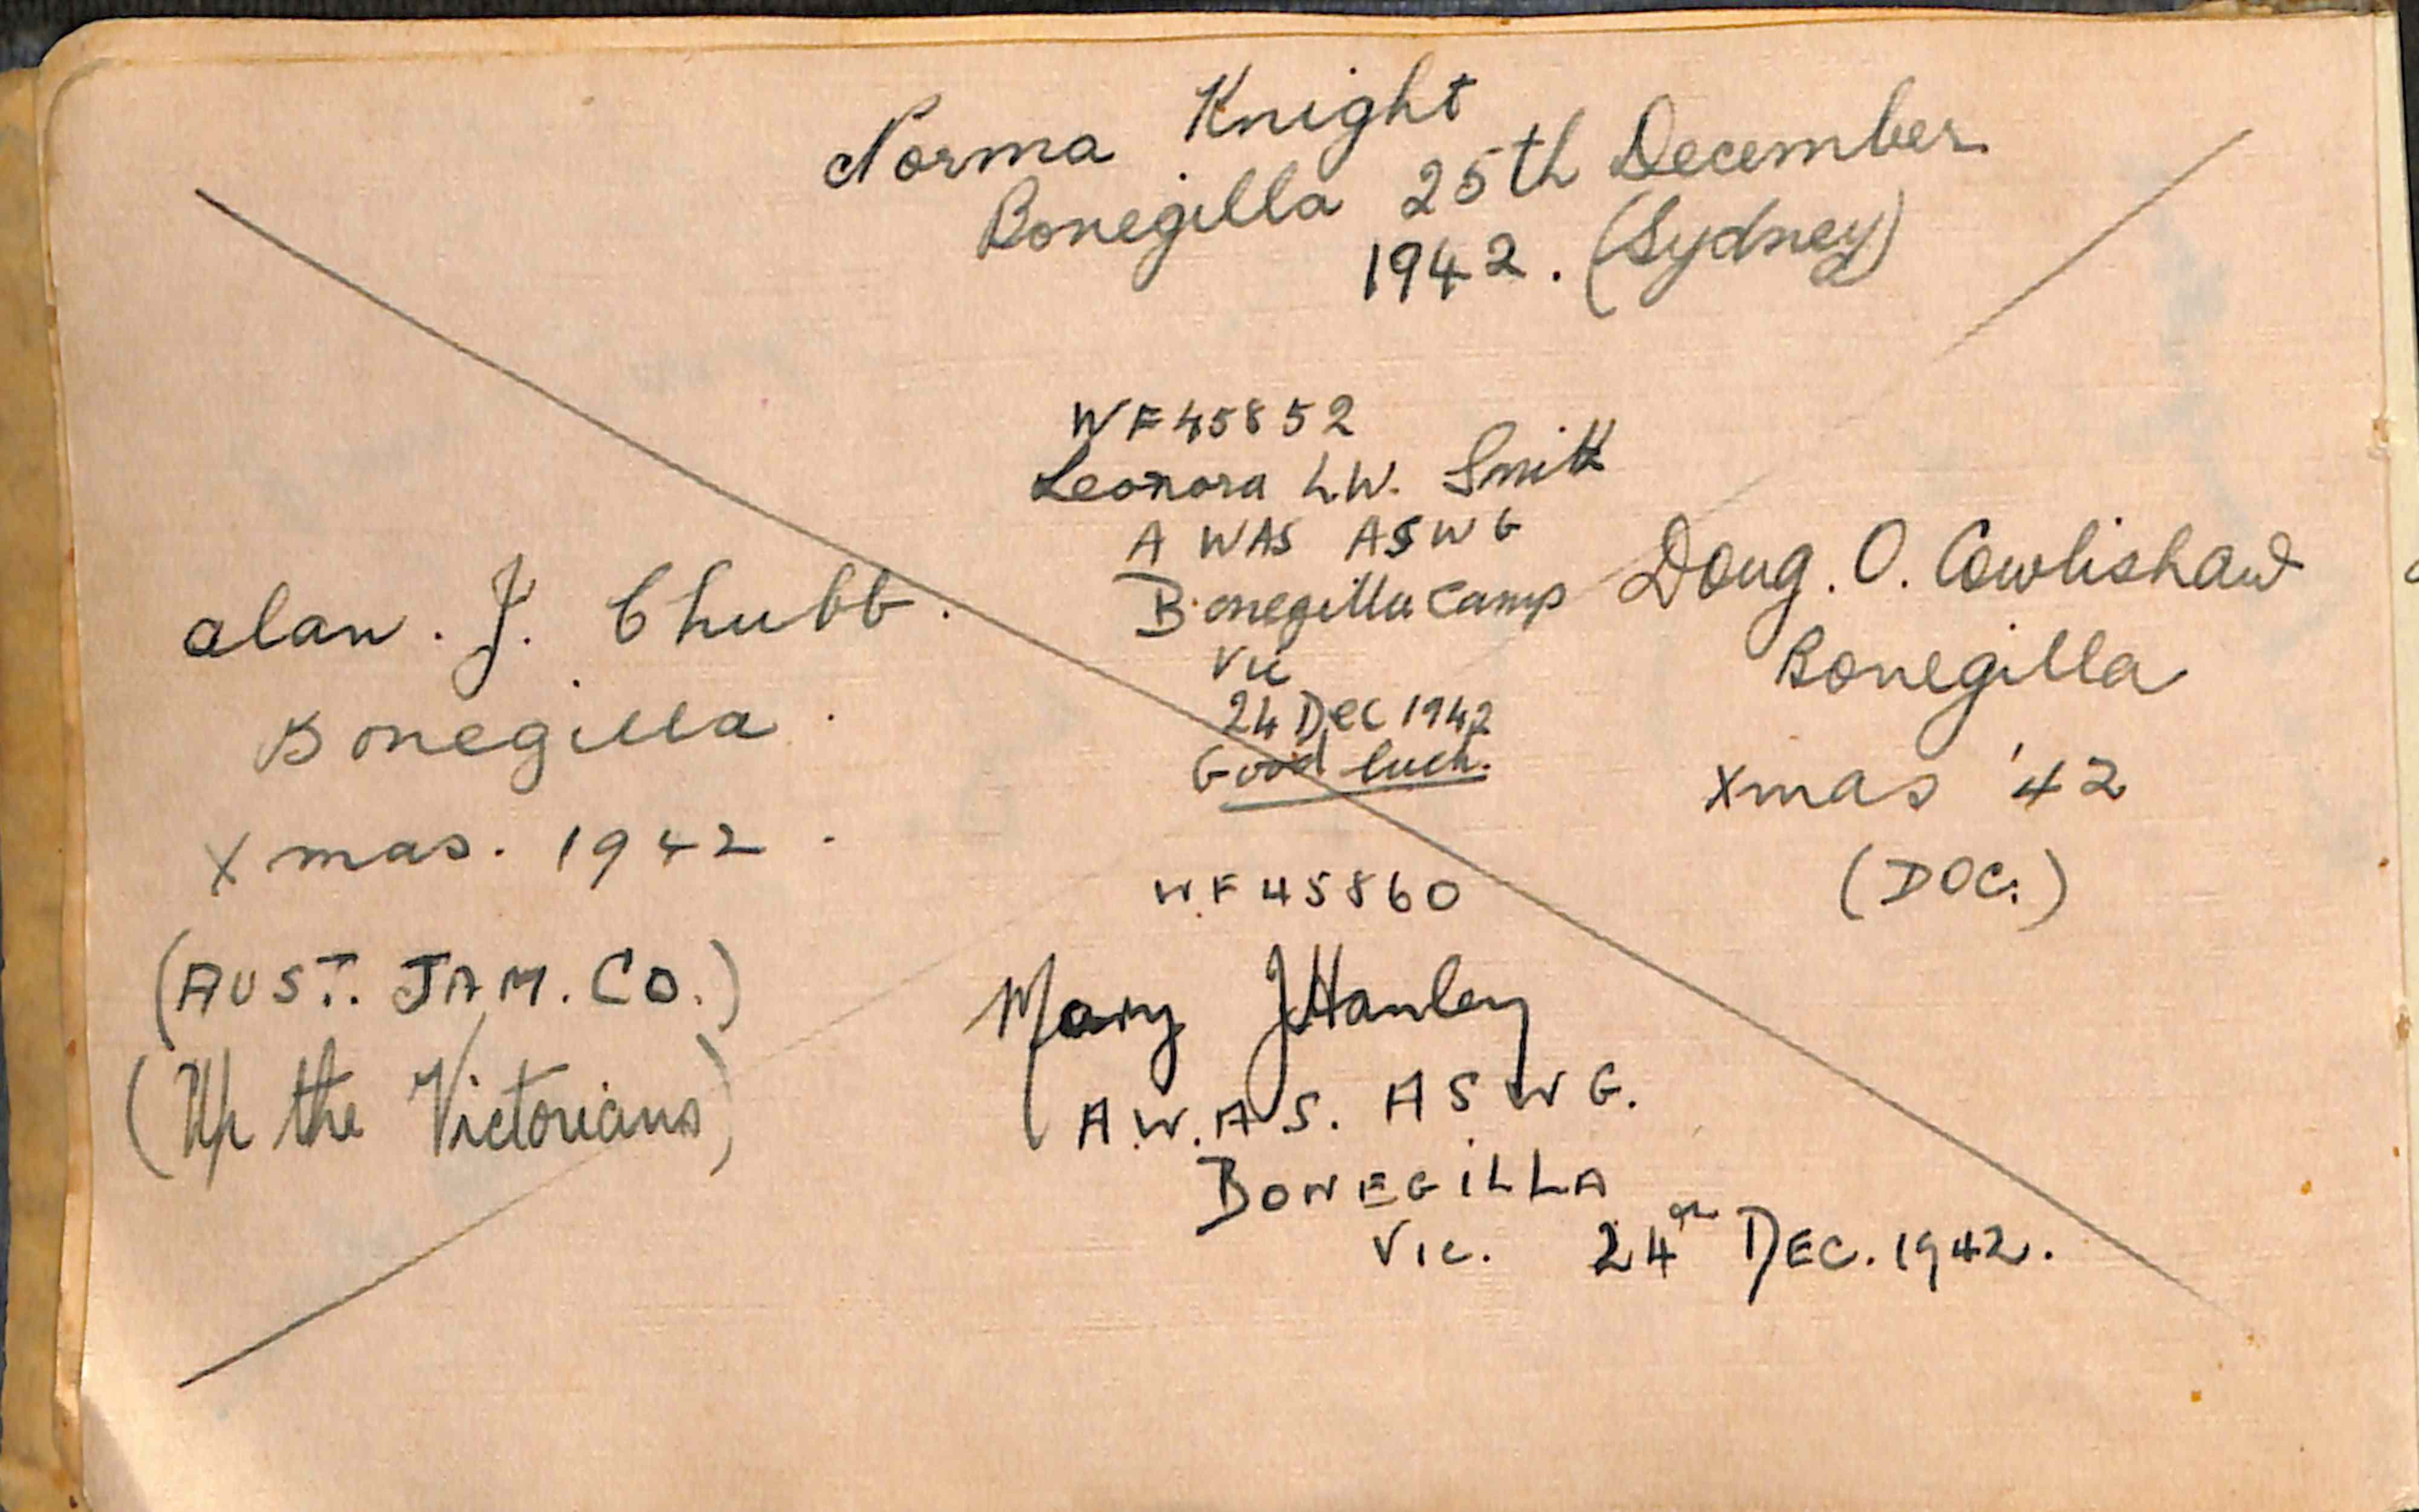 Norma Knight
Bonegilla 25th December
1942. (Sydney)
WF45852
Leonora L.W. Smith
A WAS ASWG
Bonegilla Camp
Vic
24 Dec 1942
Good luck.
Alan. J. Chubb.
Bonegilla.
Xmas. 1942.
(AUST. JAM. CO.)
(Up the Victorians)
Doug. O. Cowlishaw
Bonegilla
Xmas '42
(DOC.)
WF45860
Mary J Hanley
A.W.A.S. ASWG.
BONEGILLA
Vic. 24th DEC. 1942.